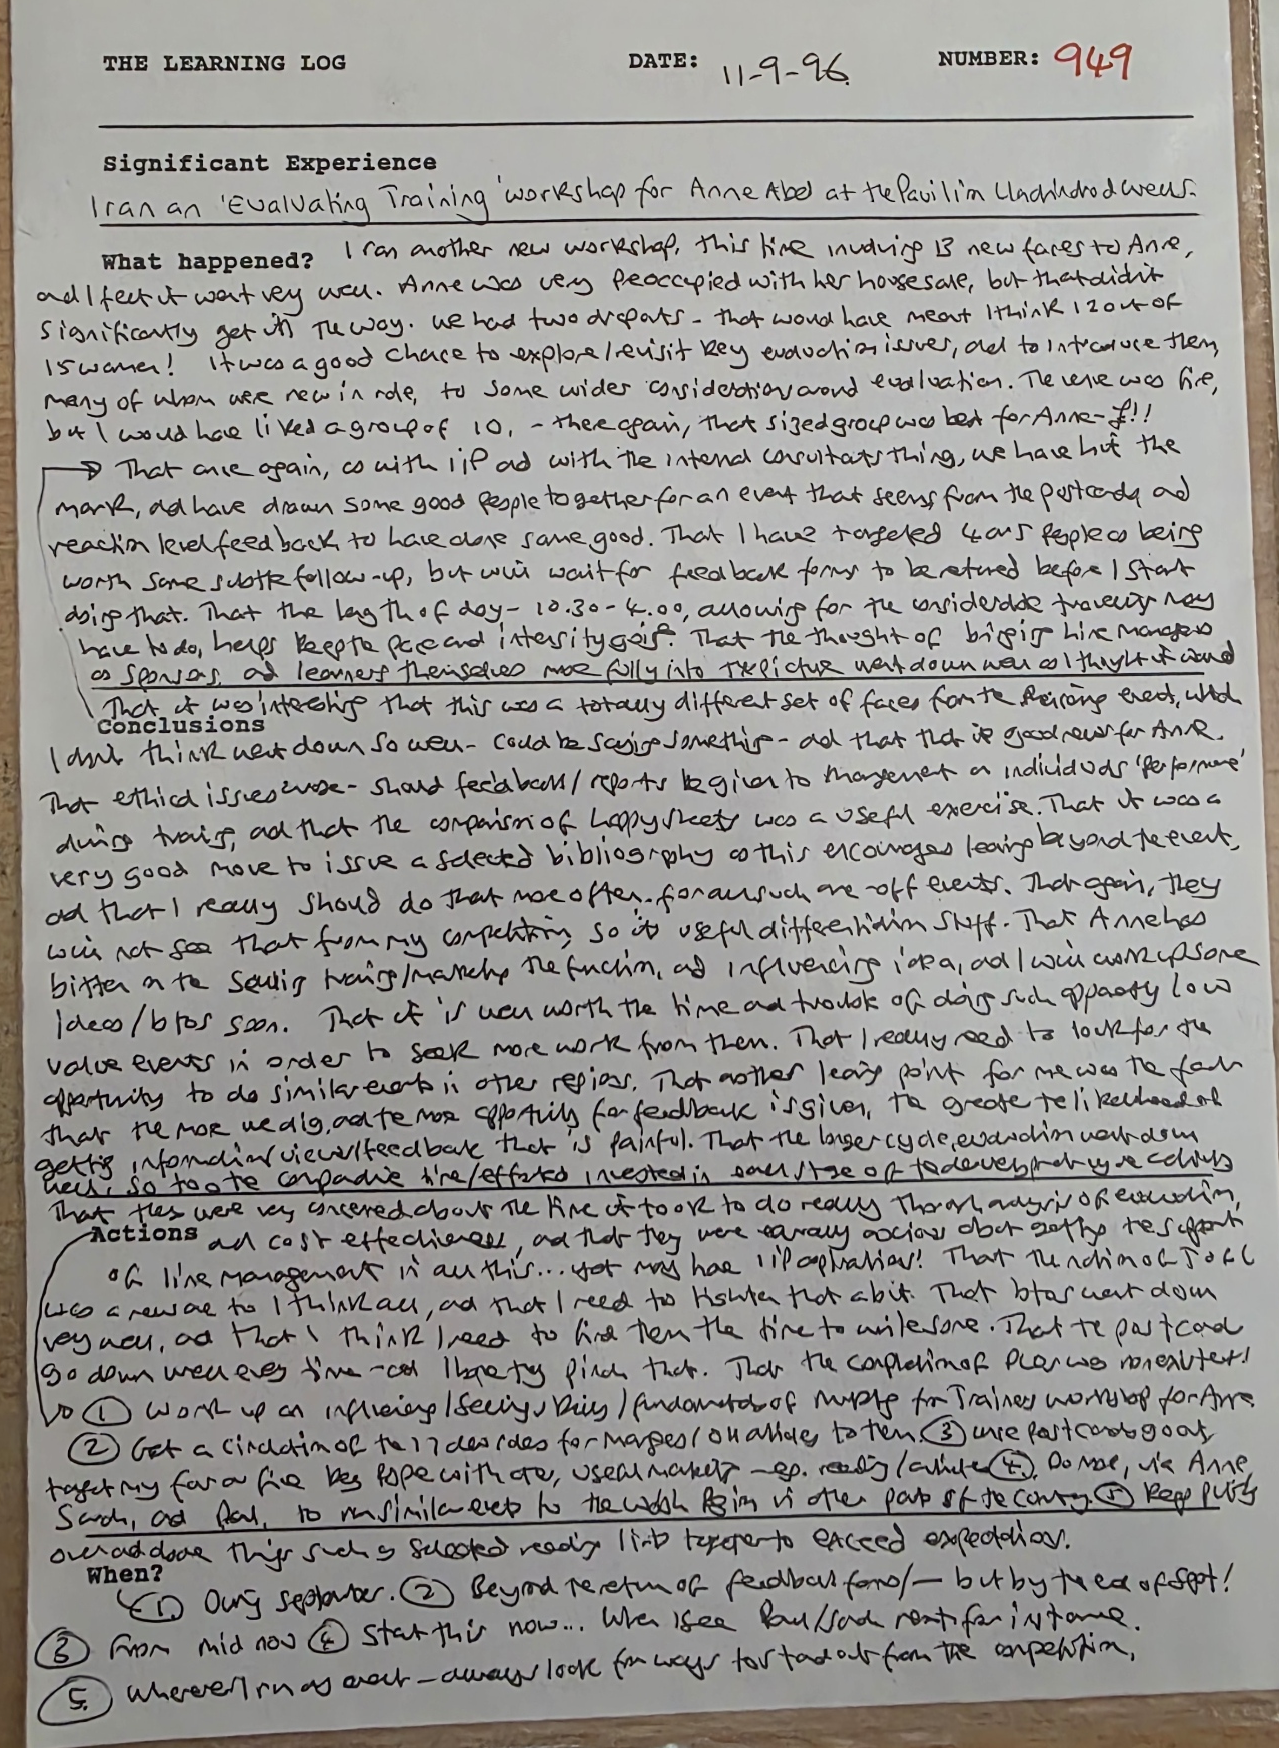 THE LEARNING LOG DATE: 11-9-96. NUMBER: 949
Significant Experience
I ran an 'Evaluating Training' workshop for Anne Abel at the Pavilion Llandrindod Wells.
What happened? I ran another new workshop, this time involving 13 new faces to Anne,
and I feel it went very well. Anne was very preoccupied with her house sale, but that didn't
significantly get in the way. We had two dropouts - that would have meant I think 12 out of
15 women! It was a good chance to explore/revisit key evaluation issues, and to introduce them,
many of whom were new in role, to some wider considerations around evaluation. The venue was fine,
but I would have liked a group of 10, - there again, that sized group was best for Anne - £!!
That once again, as with IIP and with the internal consultants thing, we have hit the
mark, and have drawn some good people together for an event that seems, from the postcards, and
reaction level feedback to have done some good. That I have targeted 4 or 5 people as being
worth some subtle follow-up, but will wait for feedback forms to be returned before I start
doing that. That the length of day - 10.30 - 4.00, allowing for the considerable travelling many
have to do, helps keep the pace and intensity going. That the thought of bringing line managers
as sponsors, and learners themselves more fully into the picture went down well as I thought it would
That it was interesting that this was a totally different set of faces from the event, which
Conclusions
I don't think went down so well - could be saying something - and that that is good news for Anne.
That ethical issues arose - should feedback/reports be given to management on individuals 'performance'
during training, and that the comparison of happy sheets was a useful exercise. That it was a
very good move to issue a selected bibliography as this encourages learning beyond the event,
and that I really should do that more often - for all such one-off events. That again, they
will not see that from my competitors, so its useful differentiation stuff. That Anne has
bitten on the selling training/marketing the function, and influencing idea, and I will work up some
ideas/btos soon. That it is well worth the time and trouble of doing such apparently low
value events in order to seek more work from them. That I really need to look for the
opportunity to do similar events in other regions. That another learning point for me was the fact
that the more we dig, and the more opportunity for feedback is given, the greater the likelihood of
getting information/views/feedback that is painful. That the longer cycle, evaluation went down
well, so too the comparative time/efforts invested in each stage of the
That they were very concerned about the time it took to do really thorough analysis of evaluation,
Actions and cost effectiveness, and that they were equally anxious about getting the support
of line management in all this... yet may have IIP aspirations! That the notion of
was a new one to I think all, and that I need to tighten that a bit. That btos went down
very well, and that I think I need to find them the time to write some. That the postcards
go down well every time - and That the completion of was non existent!
① Work up an influencing/selling /fundamentals of mktg for Trainers workshop for Anne.
② Get a circulation of the for managers to them. ③ use postcards again,
together my with useful ④ Do more, via Anne,
and Paul, to run similar events to the Welsh in other parts of the country. ⑤ Keep putting
over and above things such as selected reading lists together to exceed expectations.
When?
① During September. ② Beyond the return of feedback forms/ - but by the end of Sept!
③ From mid nov ④ Start this now... When I see Paul/ next for instance.
⑤ Wherever I run an event - always look for ways to stand out from the competition.